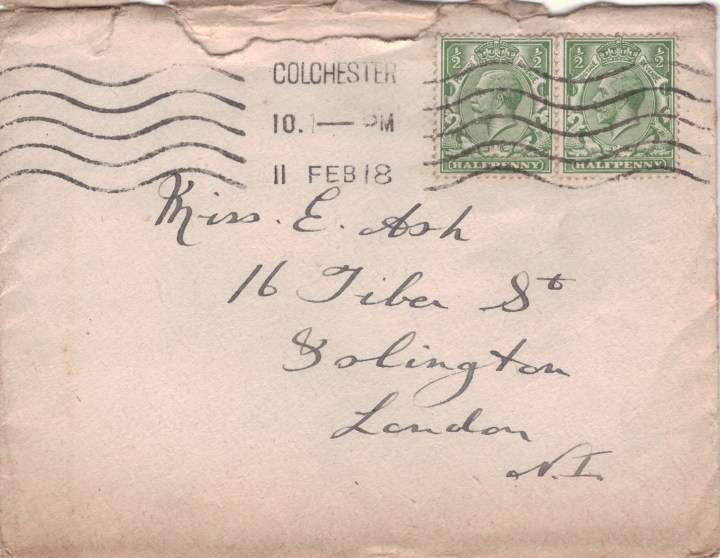 COLCHESTER
10. PM
11 FEB 18
½ ½ ½ ½
HALFPENNY HALFPENNY
Miss. E. Ash
16 Tiber St
Islington
London
N.1.